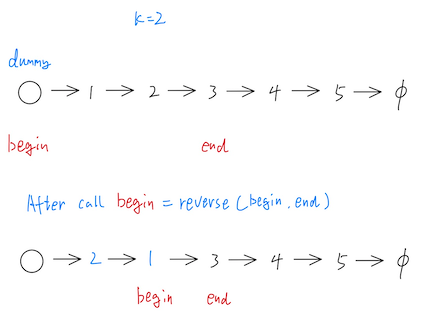 k=2
dummy
○ → 1 → 2 → 3 → 4 → 5 → ϕ
begin end
After call begin = reverse (begin, end)
○ → 2 → 1 → 3 → 4 → 5 → ϕ
begin end